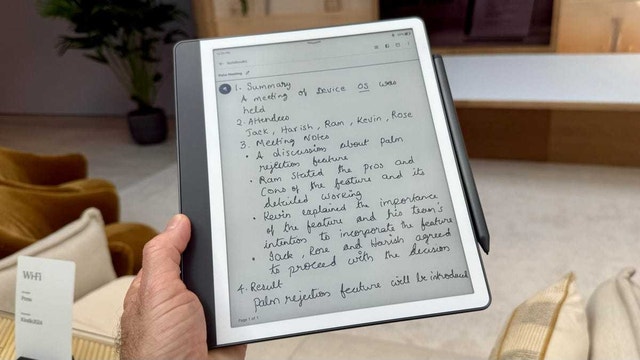 Notebooks
Team Meeting
1. Summary
A meeting of Device OS was
held
2. Attendees
Jack, Harish, Ram, Kevin, Rose
3. Meeting Notes
• A discussion about palm
rejection feature
• Ram stated the pros and
cons of the feature and its
detailed working
• Kevin explained the importance
of the feature and his team's
intention to incorporate the feature
• Jack, Rose and Harish agreed
to proceed with the decision
4. Result
Palm rejection feature will be introduced
Page 1 of 1
Wi-Fi